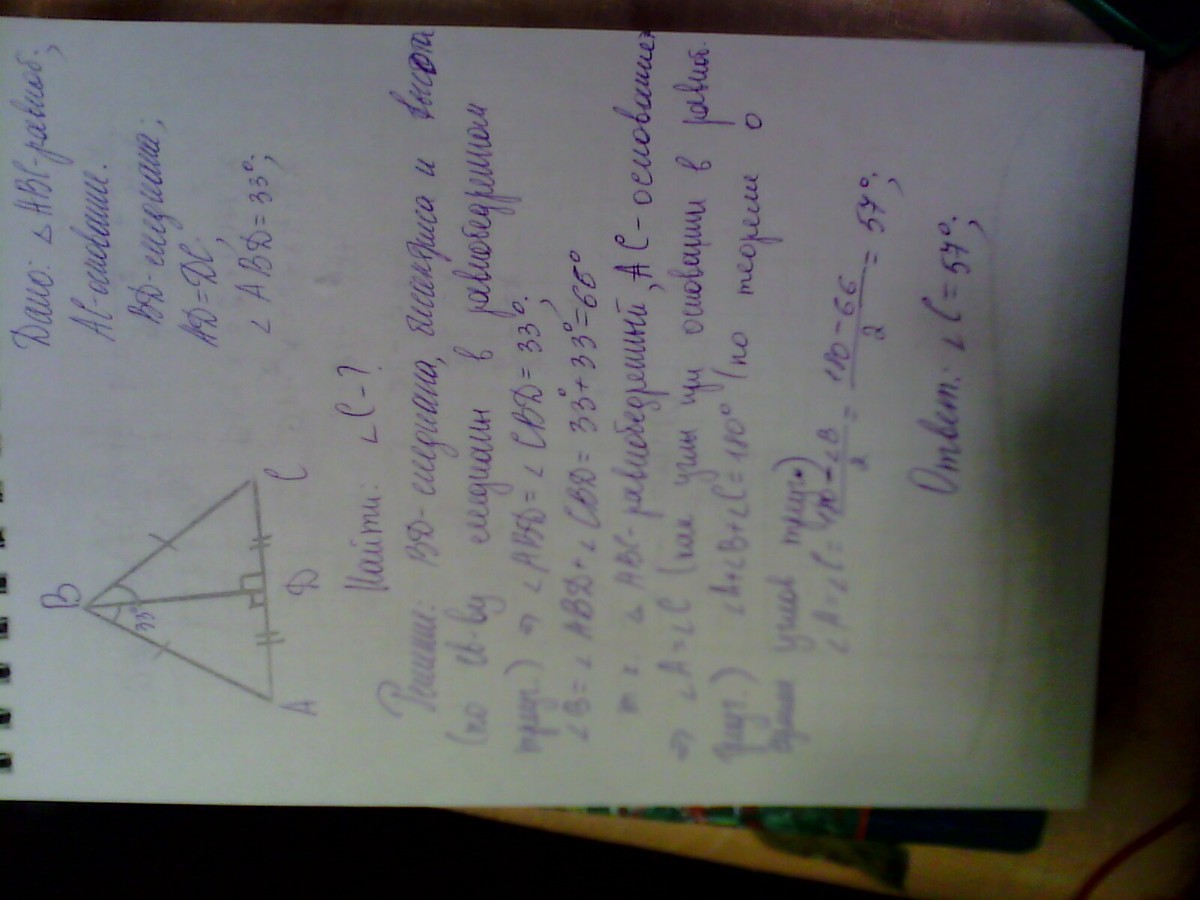 Дано: ∆ ABC-равноб.;
AC-основание.
BD-медиана;
AD=DC;
∠ ABD=33°;
B
33°
A
D
C
Найти: ∠C-?
Решение: BD-медиана, биссектриса и высота
(по св-ву медианы в равнобедренном
треуг.) ⇒ ∠ABD=∠CBD=33°;
∠B=∠ABD+∠CBD=33°+33°=66°
т.к. ∆ ABC-равнобедренный, AC-основание
⇒ ∠A=∠C (как углы при основании в равноб.
треуг.) ∠A+∠B+∠C=180° (по теореме о
сумме углов треуг.)
∠A=∠C=180-∠B/2=180-66/2=57°;
Ответ: ∠C=57°;